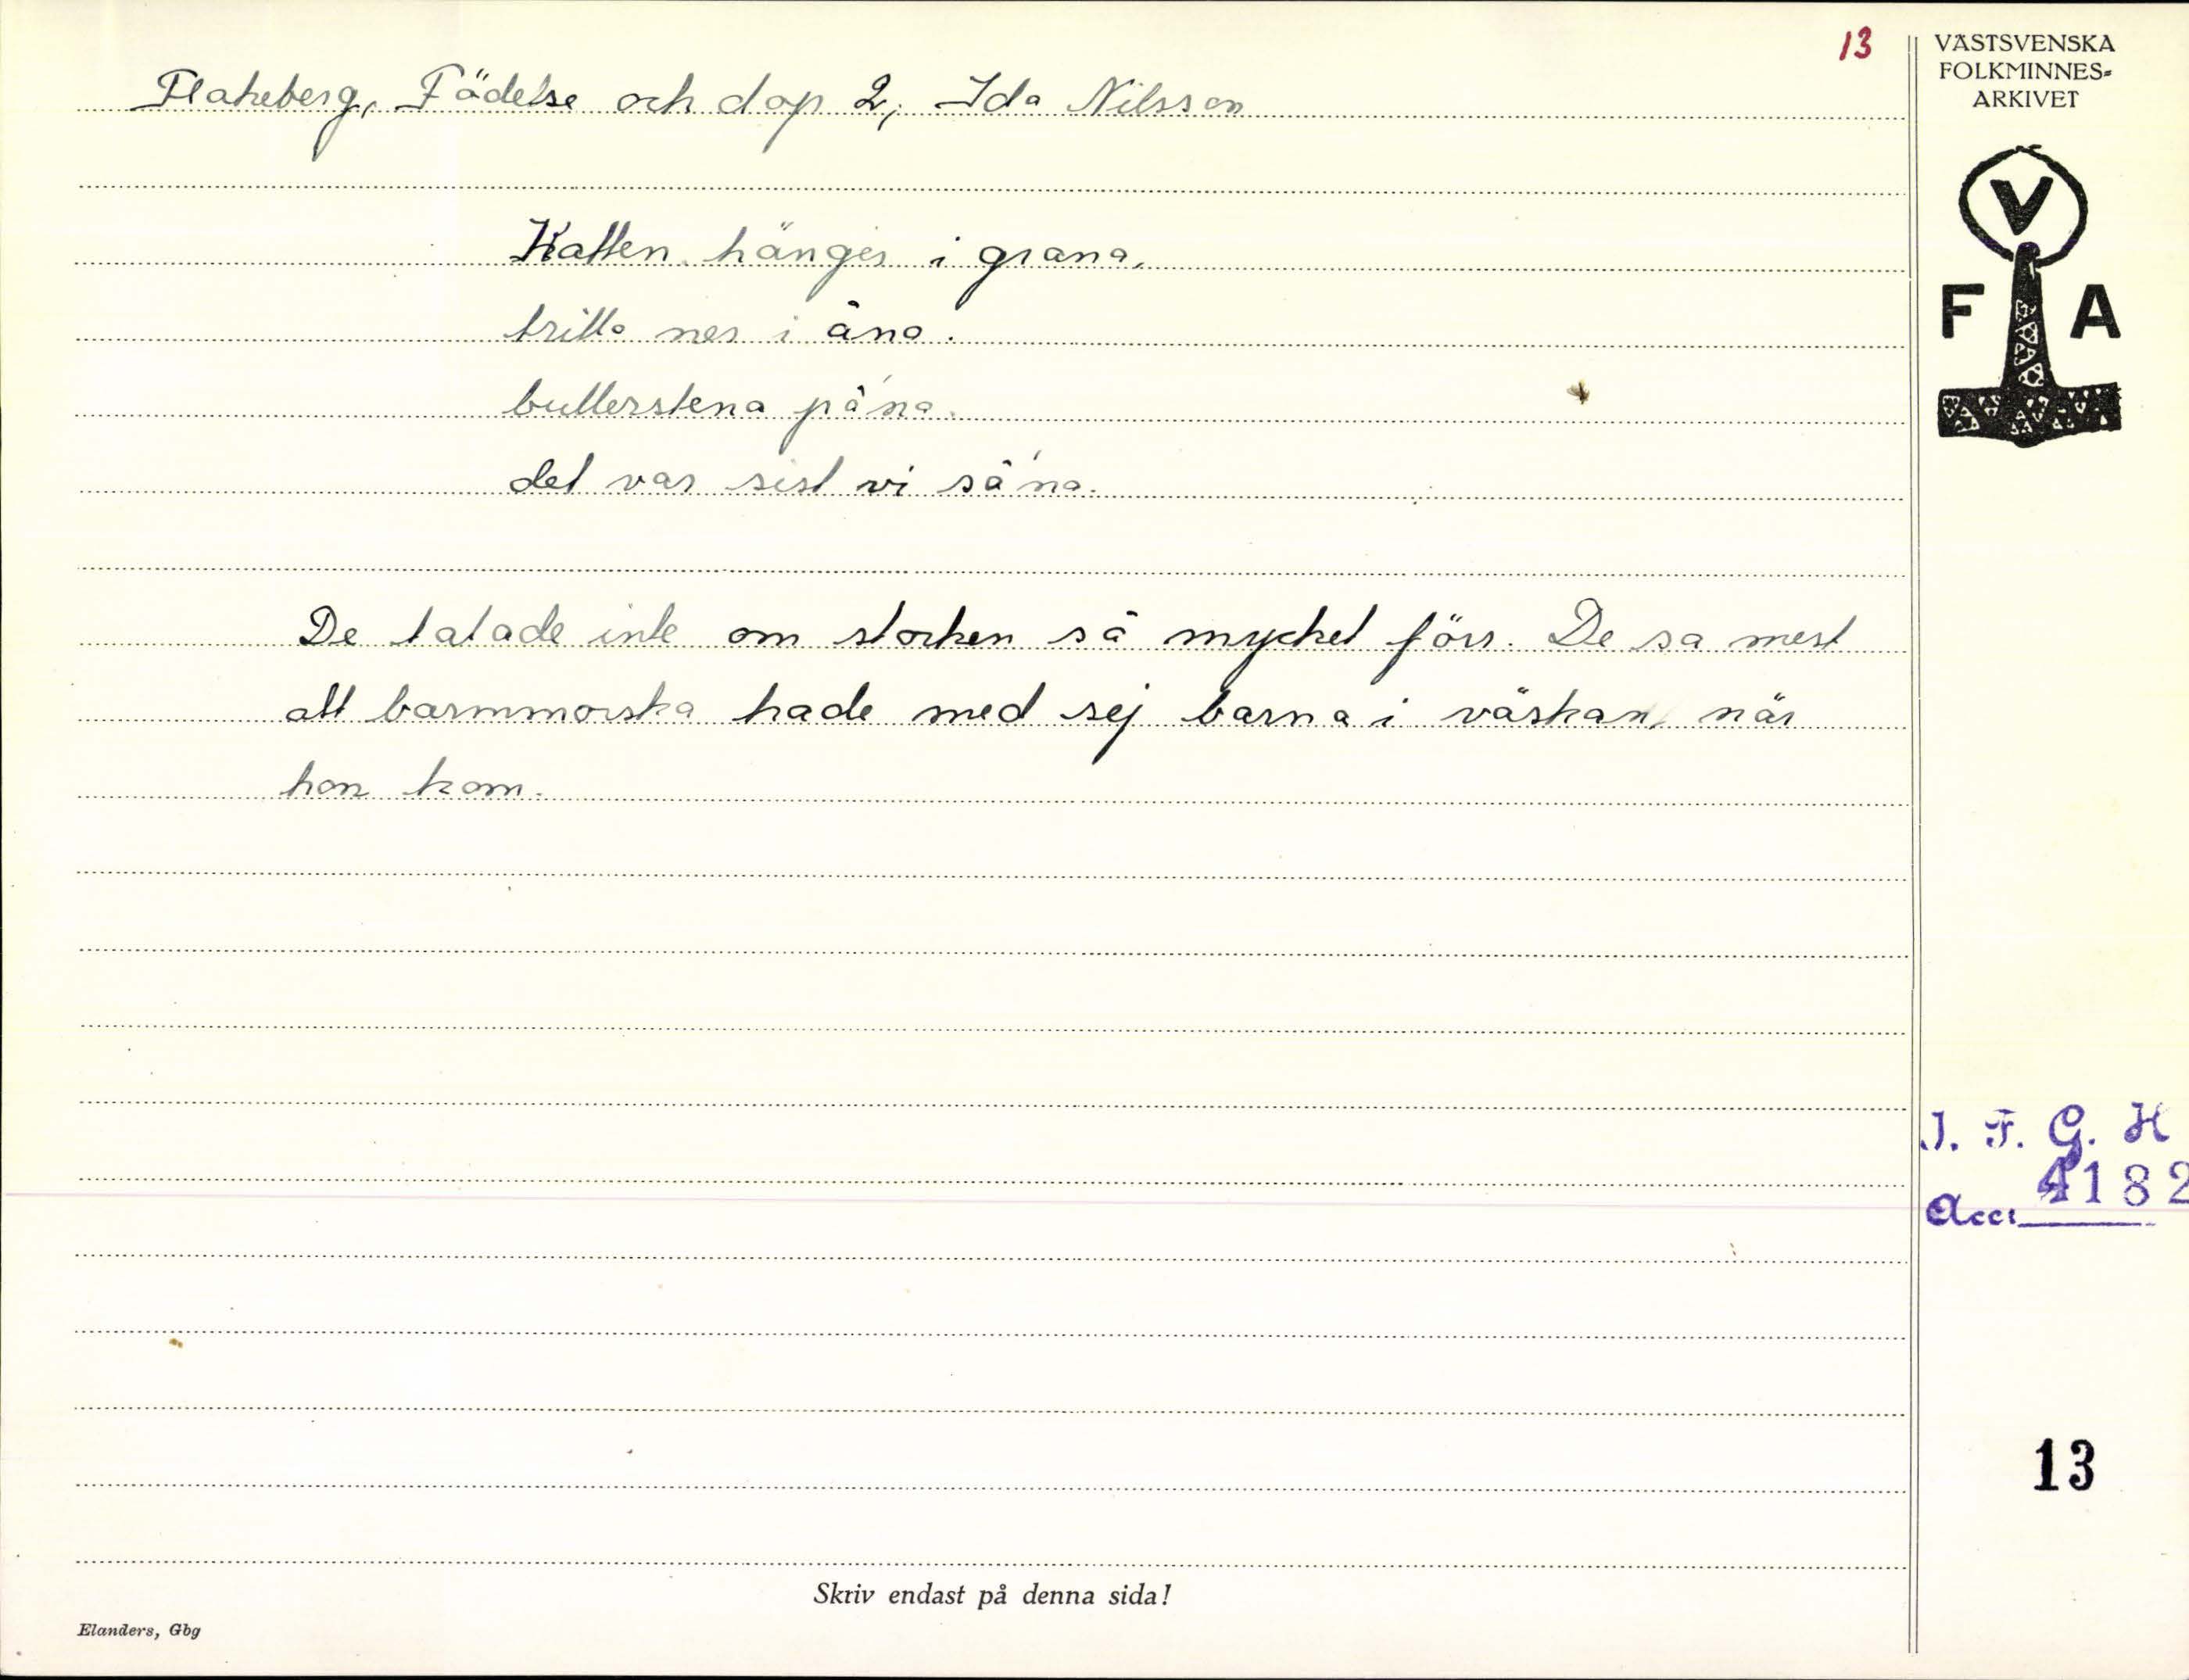 13
Flakeberg, Födelse och dop 2, Ida Nilsson
Katten hänger i grana,
trilla ner i åna.
bullerstena på'na.
det var sist vi så'na.
De talade inte om storken så mycket förr. De sa mest
att barnmorska hade med sej barna i väskan, när
hon kom.
Skriv endast på denna sida!
Elanders, Gbg
VÄSTSVENSKA
FOLKMINNES=
ARKIVET
V
F A
I. F. G. H
4182
Acc:
13